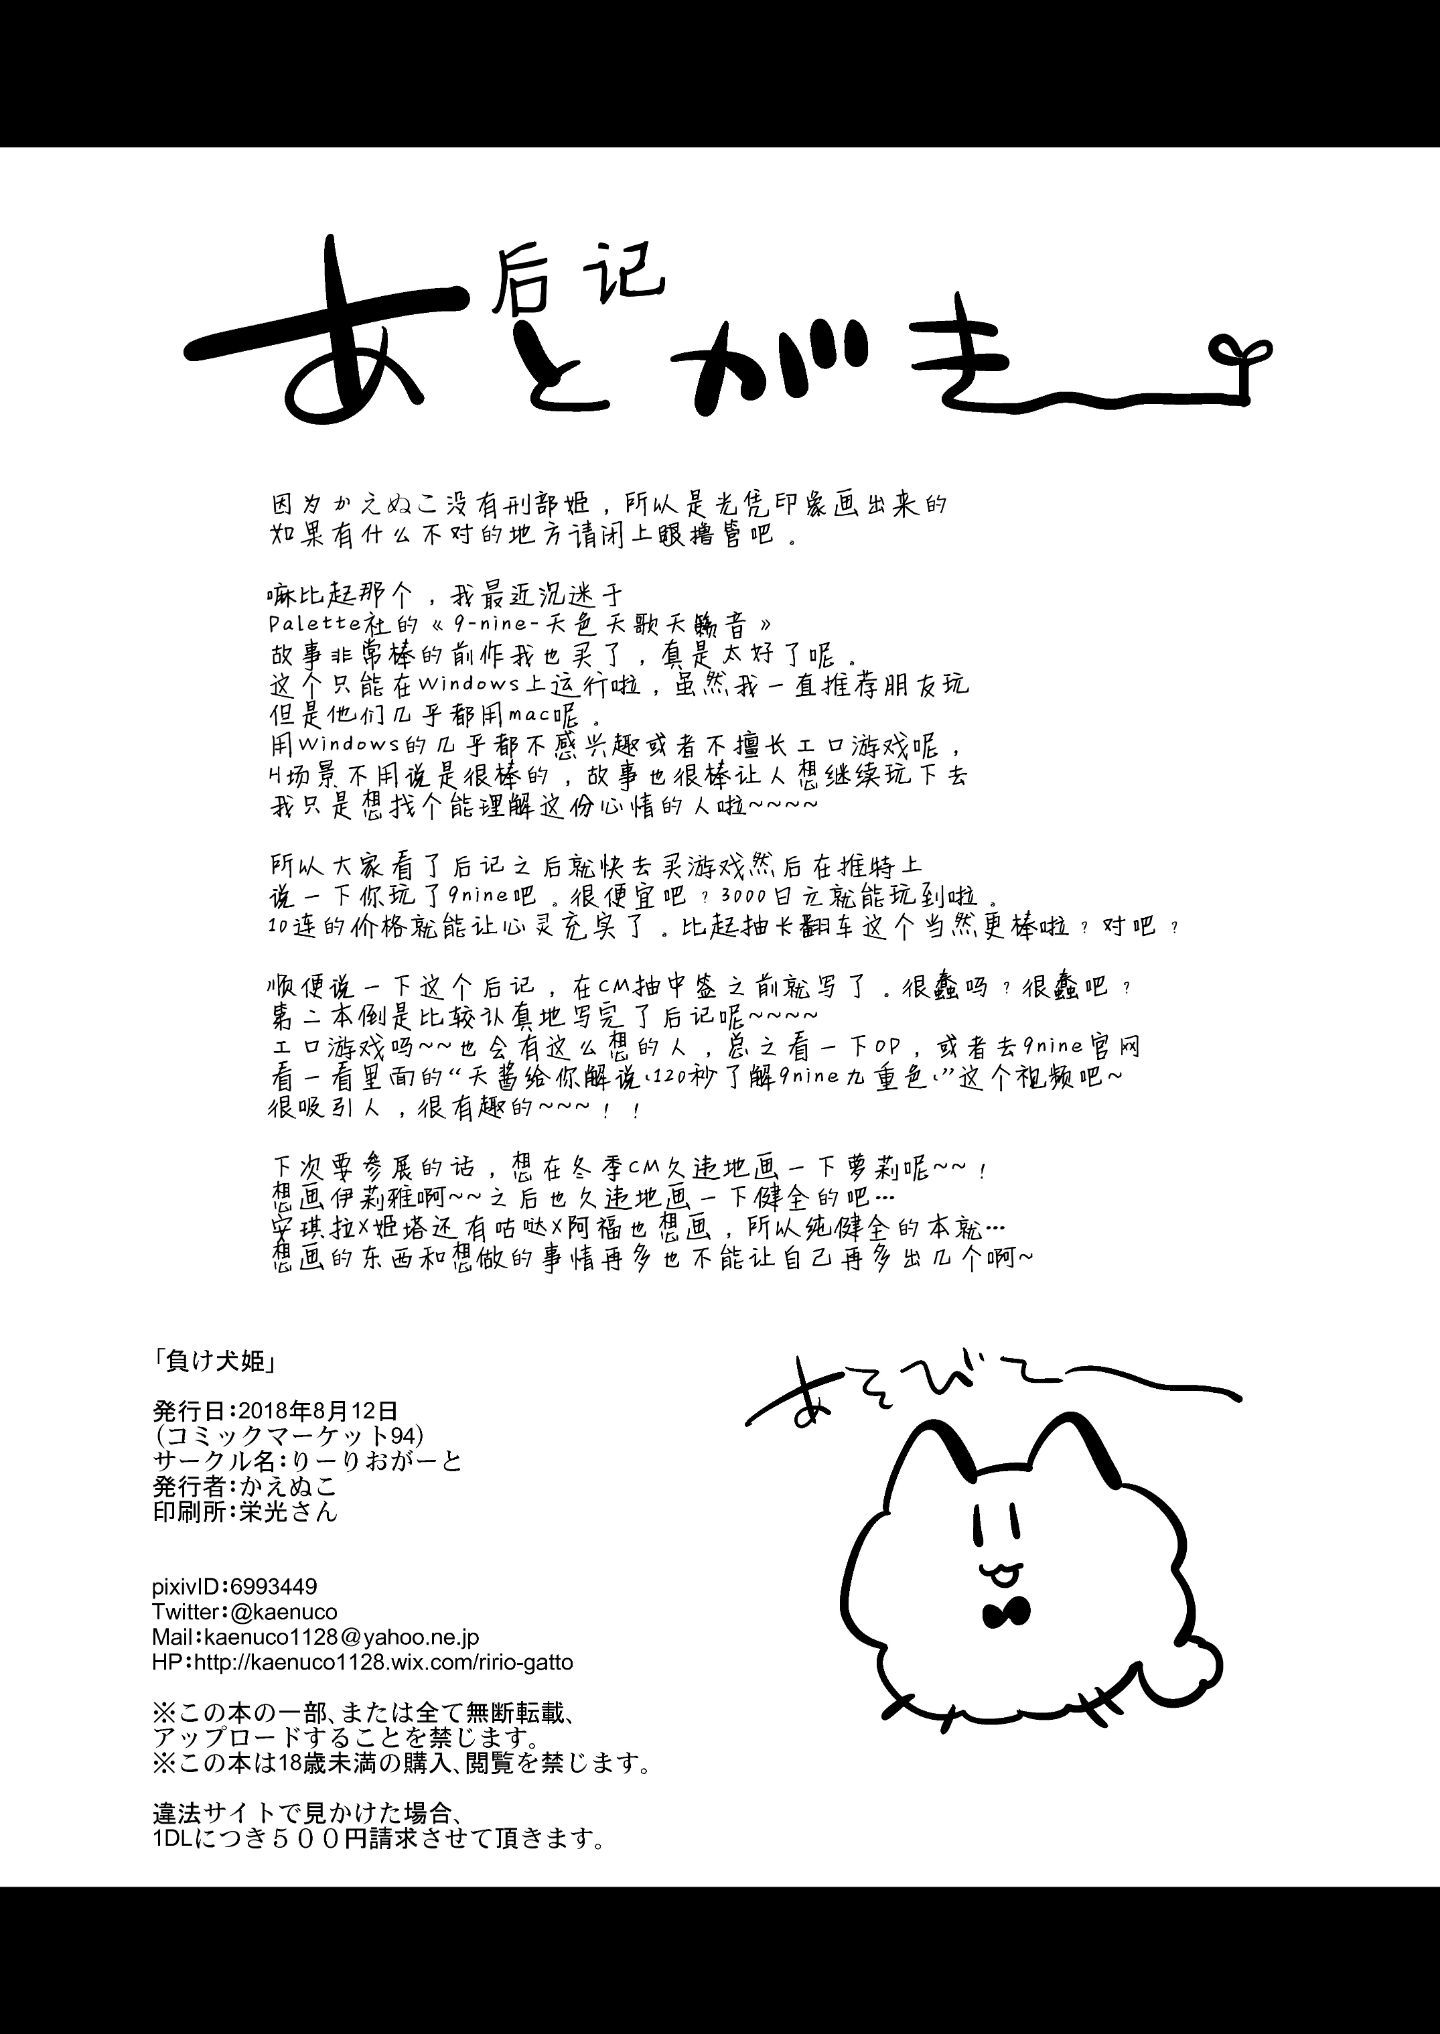 后记
あとがき
因为かえぬこ没有刑部姬，所以是光凭印象画出来的
如果有什么不对的地方请闭上眼撸管吧。
嘛比起那个，我最近沉迷于
Palette社的《9-nine-天色天歌天籁音》
故事非常棒的前作我也买了，真是太好了呢。
这个只能在Windows上运行啦，虽然我一直推荐朋友玩
但是他们几乎都用mac呢。
用Windows的几乎都不感兴趣或者不擅长工口游戏呢，
H场景不用说是很棒的，故事也很棒让人想继续玩下去
我只是想找个能理解这份心情的人啦~~~~
所以大家看了后记之后就快去买游戏然后在推特上
说一下你玩了9nine吧。很便宜吧？3000日元就能玩到啦。
10连的价格就能让心灵充实了。比起抽卡翻车这个当然更棒啦？对吧？
顺便说一下这个后记，在CM抽中签之前就写了。很蠢吗？很蠢吧？
第二本倒是比较认真地写完了后记呢~~~~
工口游戏吗~~也会有这么想的人，总之看一下OP，或者去9nine官网
看一看里面的“天酱给你解说、120秒了解9nine九重色、”这个视频吧~
很吸引人，很有趣的~~~！！
下次要参展的话，想在冬季CM久违地画一下萝莉呢~~！
想画伊莉雅啊~~之后也久违地画一下健全的吧…
安琪拉X姬塔还有咕哒X阿福也想画，所以纯健全的本就…
想画的东西和想做的事情再多也不能让自己再多出几个啊~
「負け犬姫」
発行日：2018年8月12日
（コミックマーケット94）
サークル名：りーりおがーと
発行者：かえぬこ
印刷所：栄光さん
pixivID：6993449
Twitter：@kaenuco
Mail：kaenuco1128@yahoo.ne.jp
HP：http://kaenuco1128.wix.com/ririo-gatto
※この本の一部、または全て無断転載、
アップロードすることを禁じます。
※この本は18歳未満の購入、閲覧を禁じます。
違法サイトで見かけた場合、
1DLにつき５００円請求させて頂きます。
あそびて